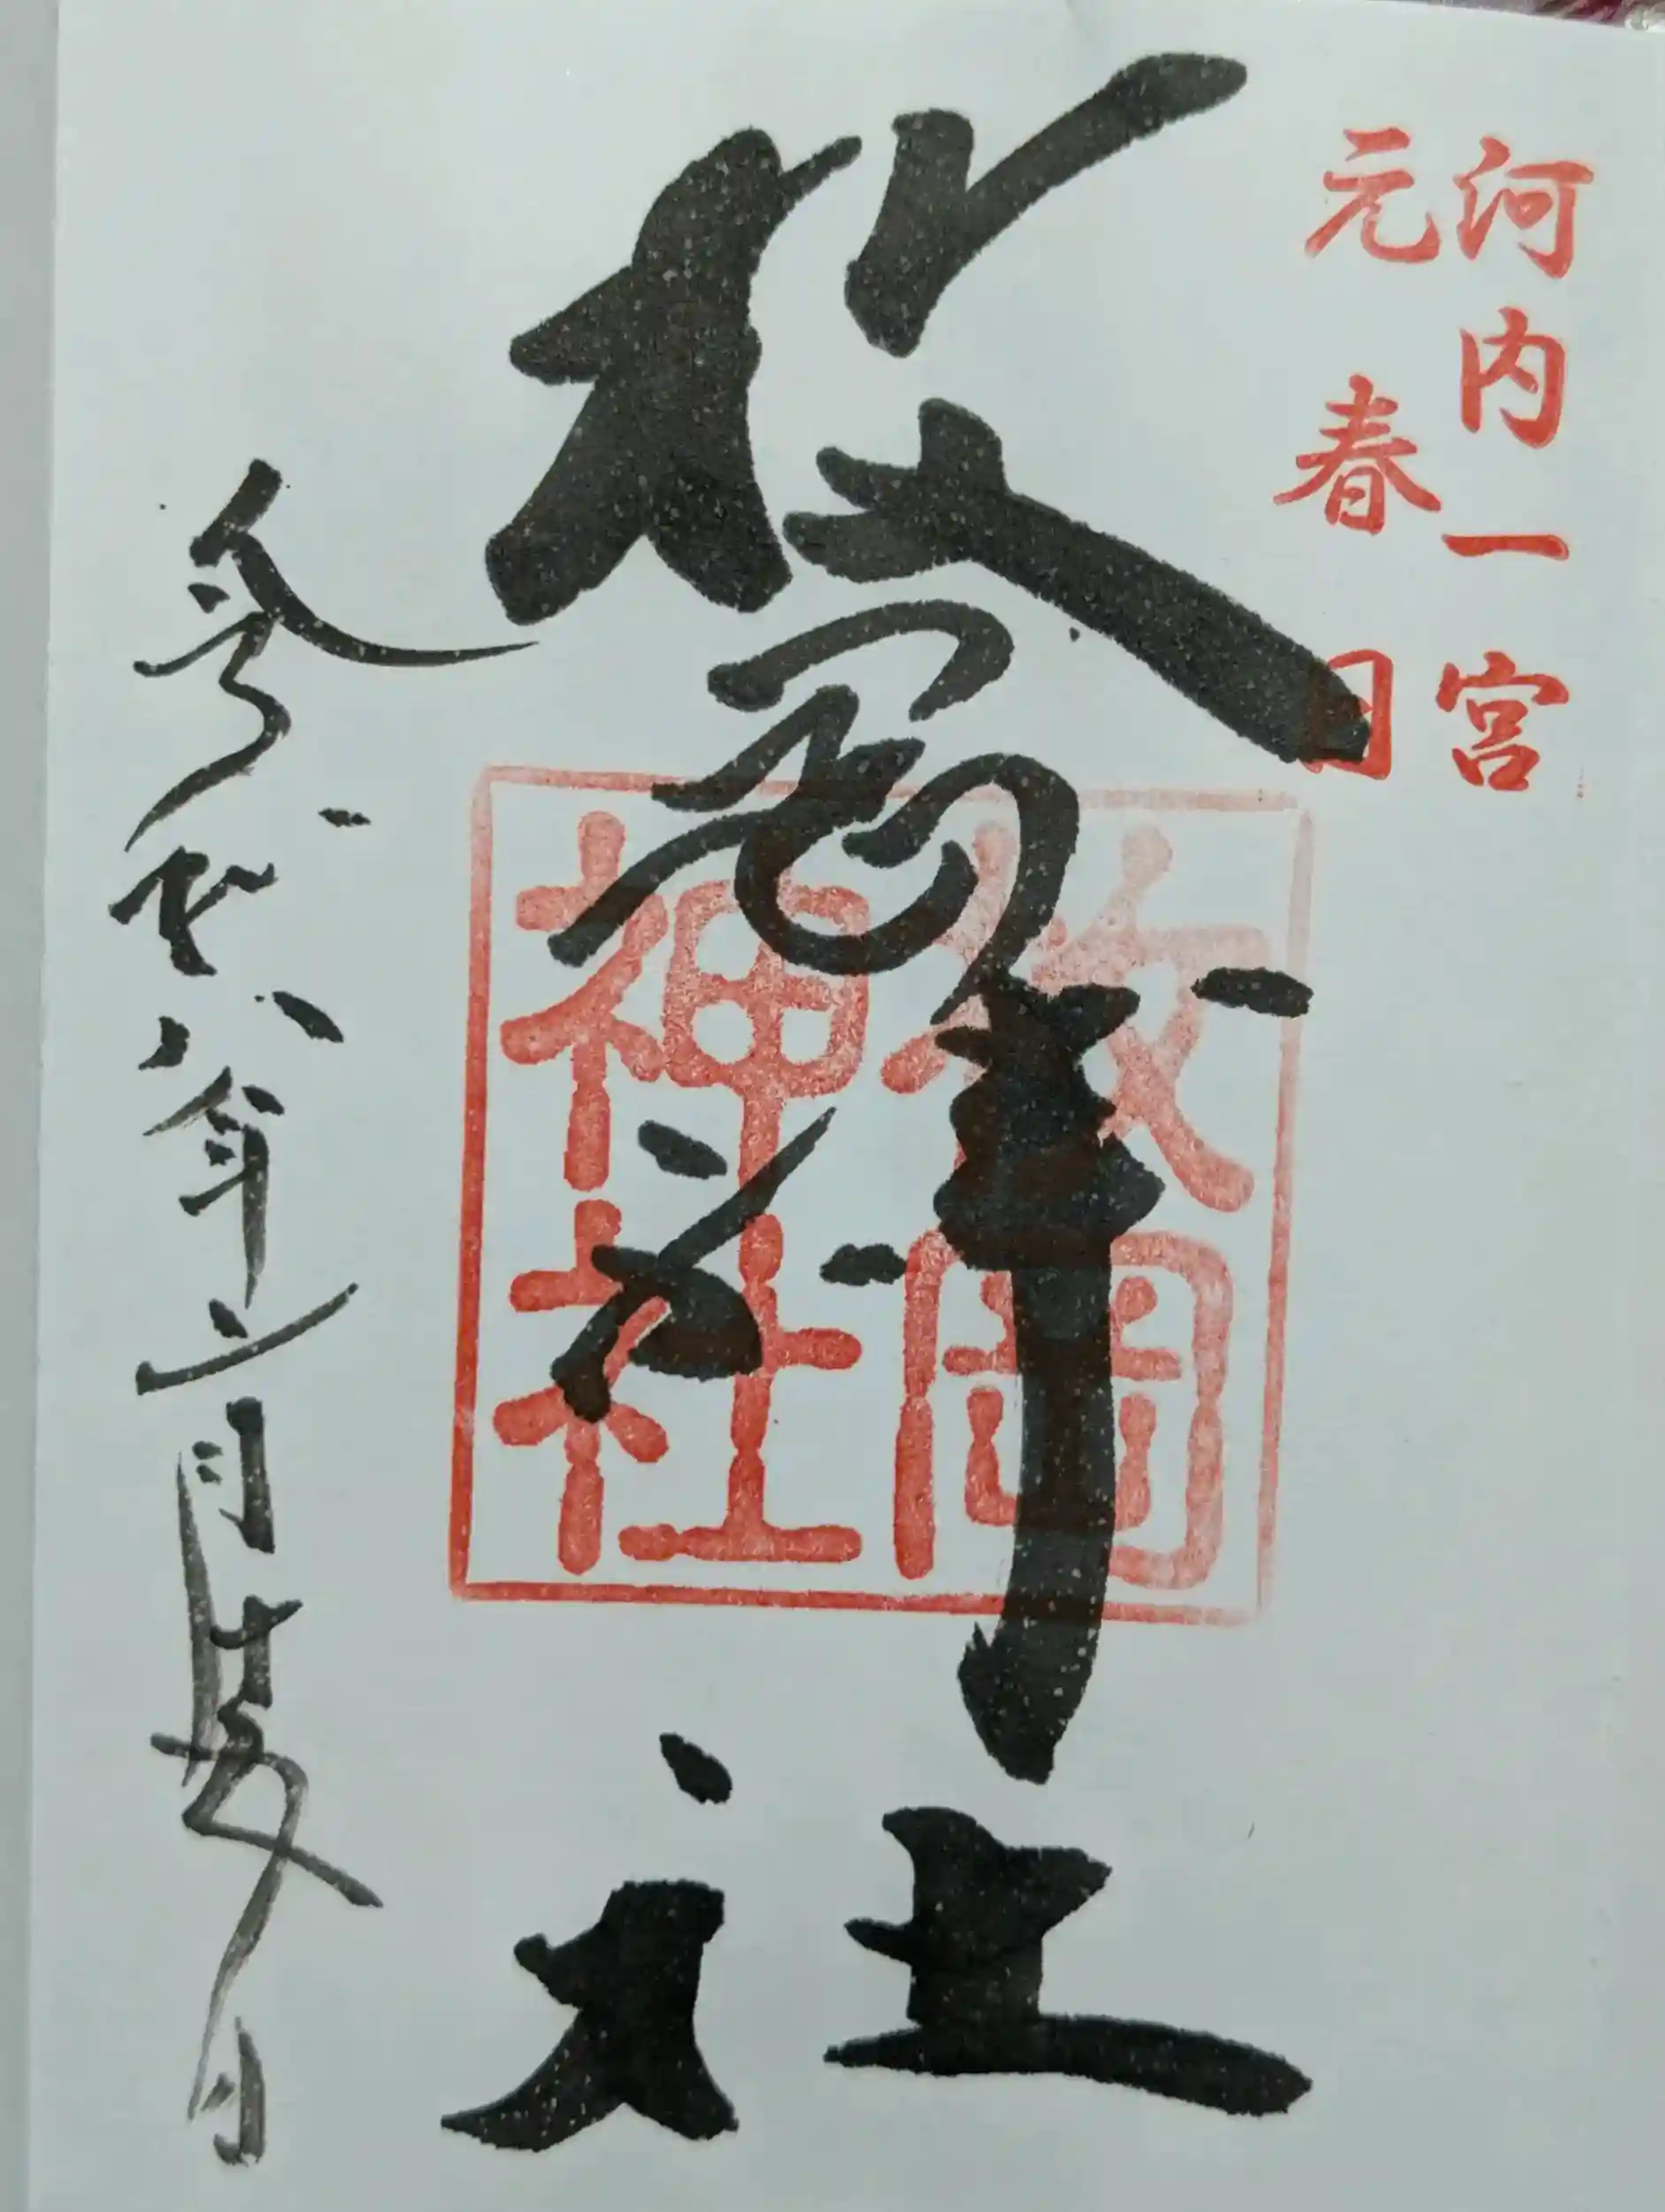 河内一宮
元春日
枚岡神社
枚岡神社
令和八年二月